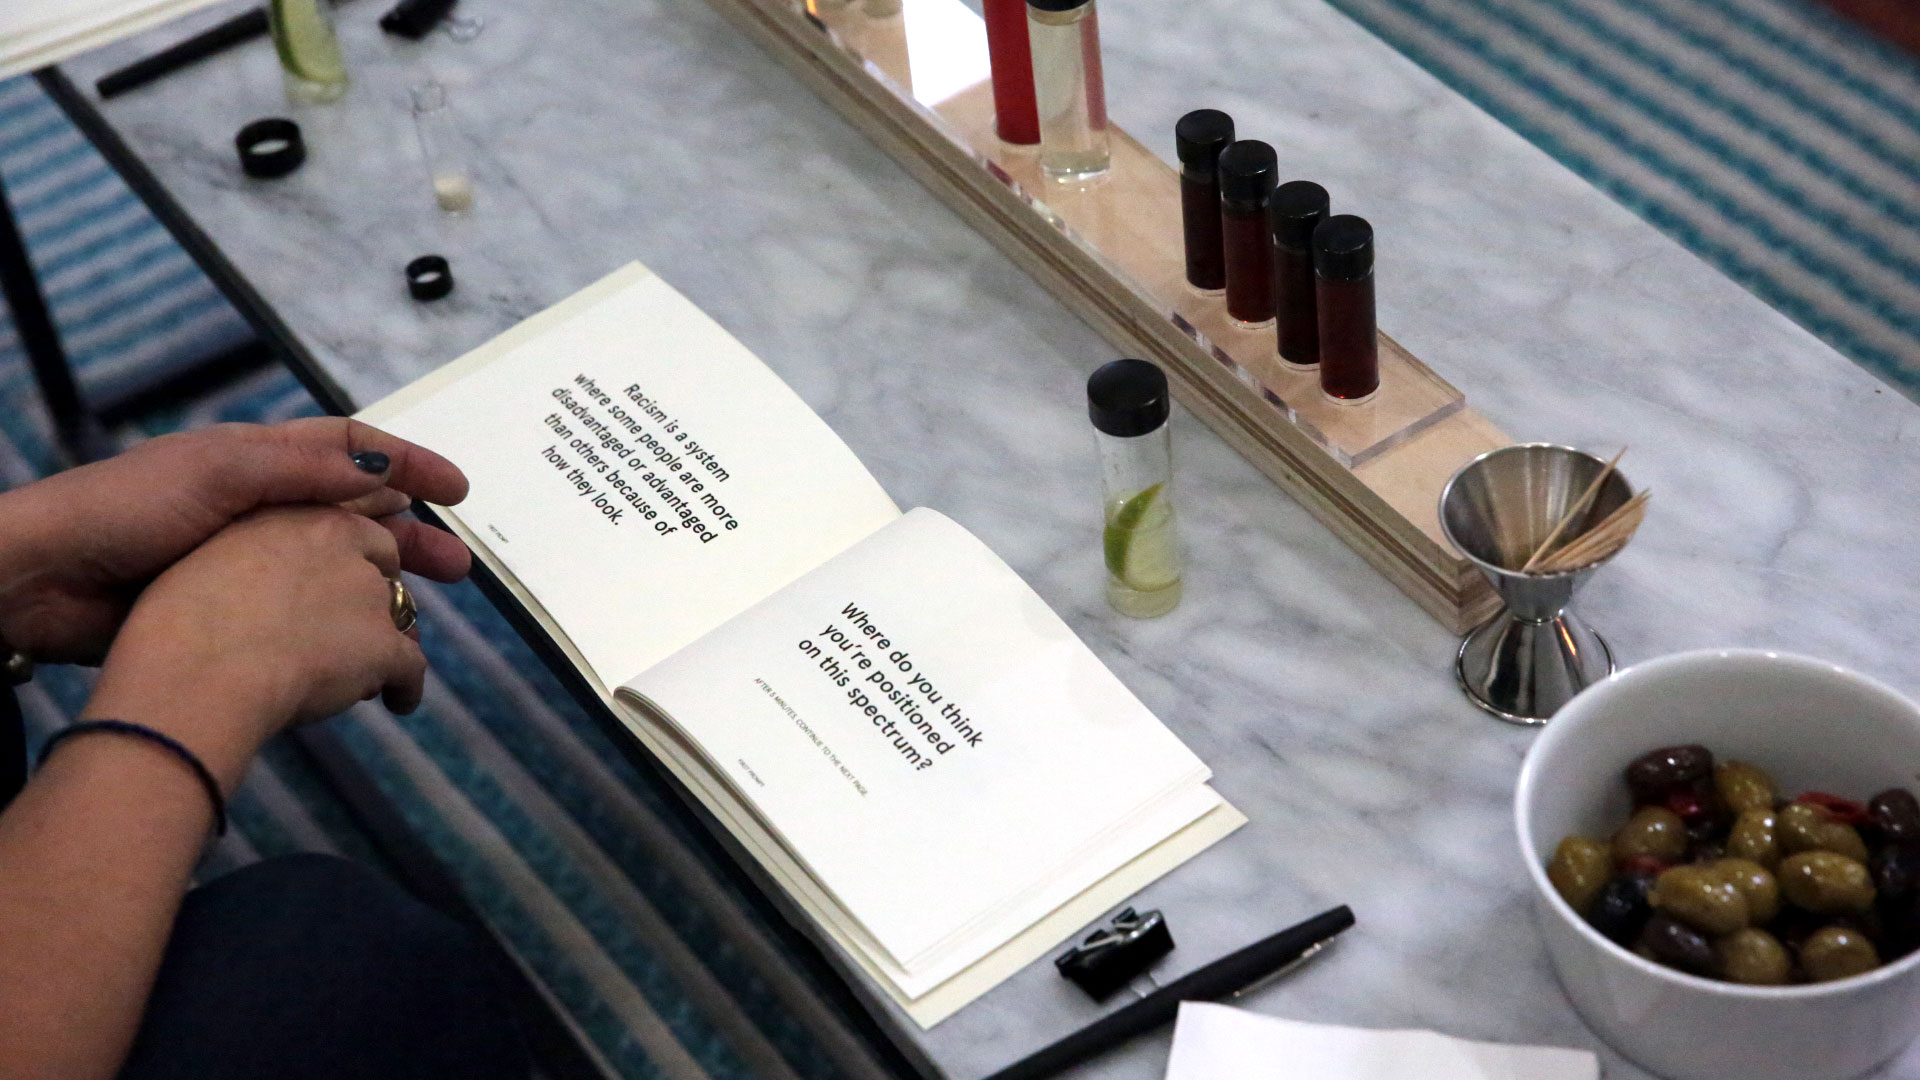 Racism is a system
where some people are more
disadvantaged or advantaged
than others because of
how they look.
Where do you think
you're positioned
on this spectrum?
AFTER 5 MINUTES, CONTINUE TO THE NEXT PAGE.